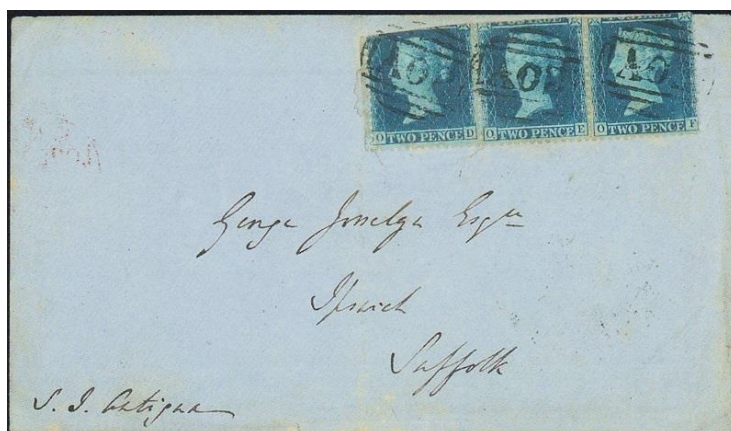 A02 A02 A02
O TWO PENCE D O TWO PENCE E O TWO PENCE F
George Josselyn Esqre
Ipswich
Suffolk
S. I. Antigua